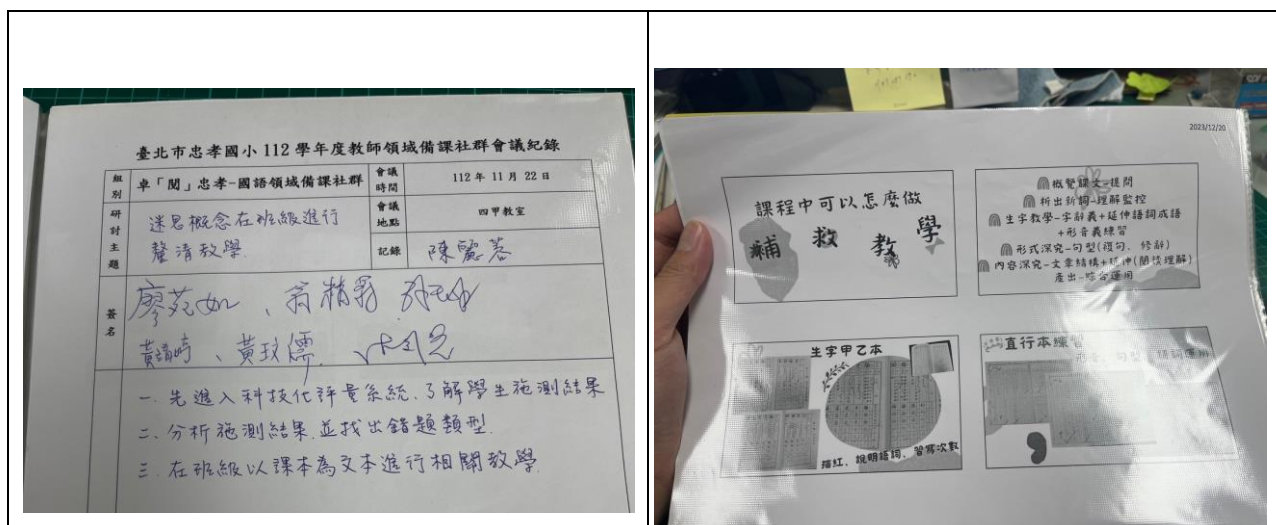 臺北市忠孝國小 112 學年度教師領域備課社群會議紀錄
組別
卓「閱」忠孝-國語領域備課社群
會議時間
112 年 11 月 22 日
研討主題
迷思概念在班級進行
釐清教學
會議地點
四甲教室
記錄
陳麗蓉
簽名
廖苑如、
黃玟儒
一. 先進入科技化評量系統,了解學生施測結果
二. 分析施測結果,並找出錯題類型.
三. 在班級以課本為文本進行相關教學.
2023/12/20
課程中可以怎麼做
補救教學
概覽課文-提問
析出新詞-理解監控
生字教學-字辭義+延伸語詞成語
+形音義練習
形式深究-句型(複句、修辭)
內容深究-文章結構+延伸(閱讀理解)
產出-綜合運用
生字甲乙本
描紅、說明語詞、習寫次數
直行本練習
句型、語詞運用